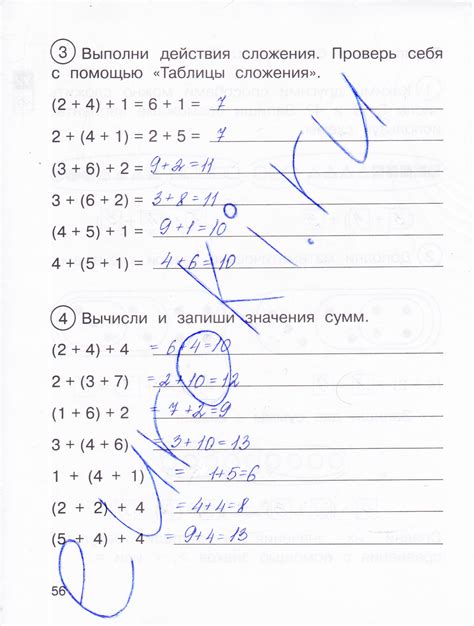 3 Выполни действия сложения. Проверь себя
с помощью «Таблицы сложения».
(2 + 4) + 1 = 6 + 1 = 7
2 + (4 + 1) = 2 + 5 = 7
(3 + 6) + 2 = 9+2=11
3 + (6 + 2) = 3+8=11
(4 + 5) + 1 = 9+1=10
4 + (5 + 1) = 4+6=10
4 Вычисли и запиши значения сумм.
(2 + 4) + 4 = 6+4=10
2 + (3 + 7) = 2+10=12
(1 + 6) + 2 = 7+2=9
3 + (4 + 6) = 3+10=13
1 + (4 + 1) = 1+5=6
(2 + 2) + 4 = 4+4=8
(5 + 4) + 4 = 9+4=13
56